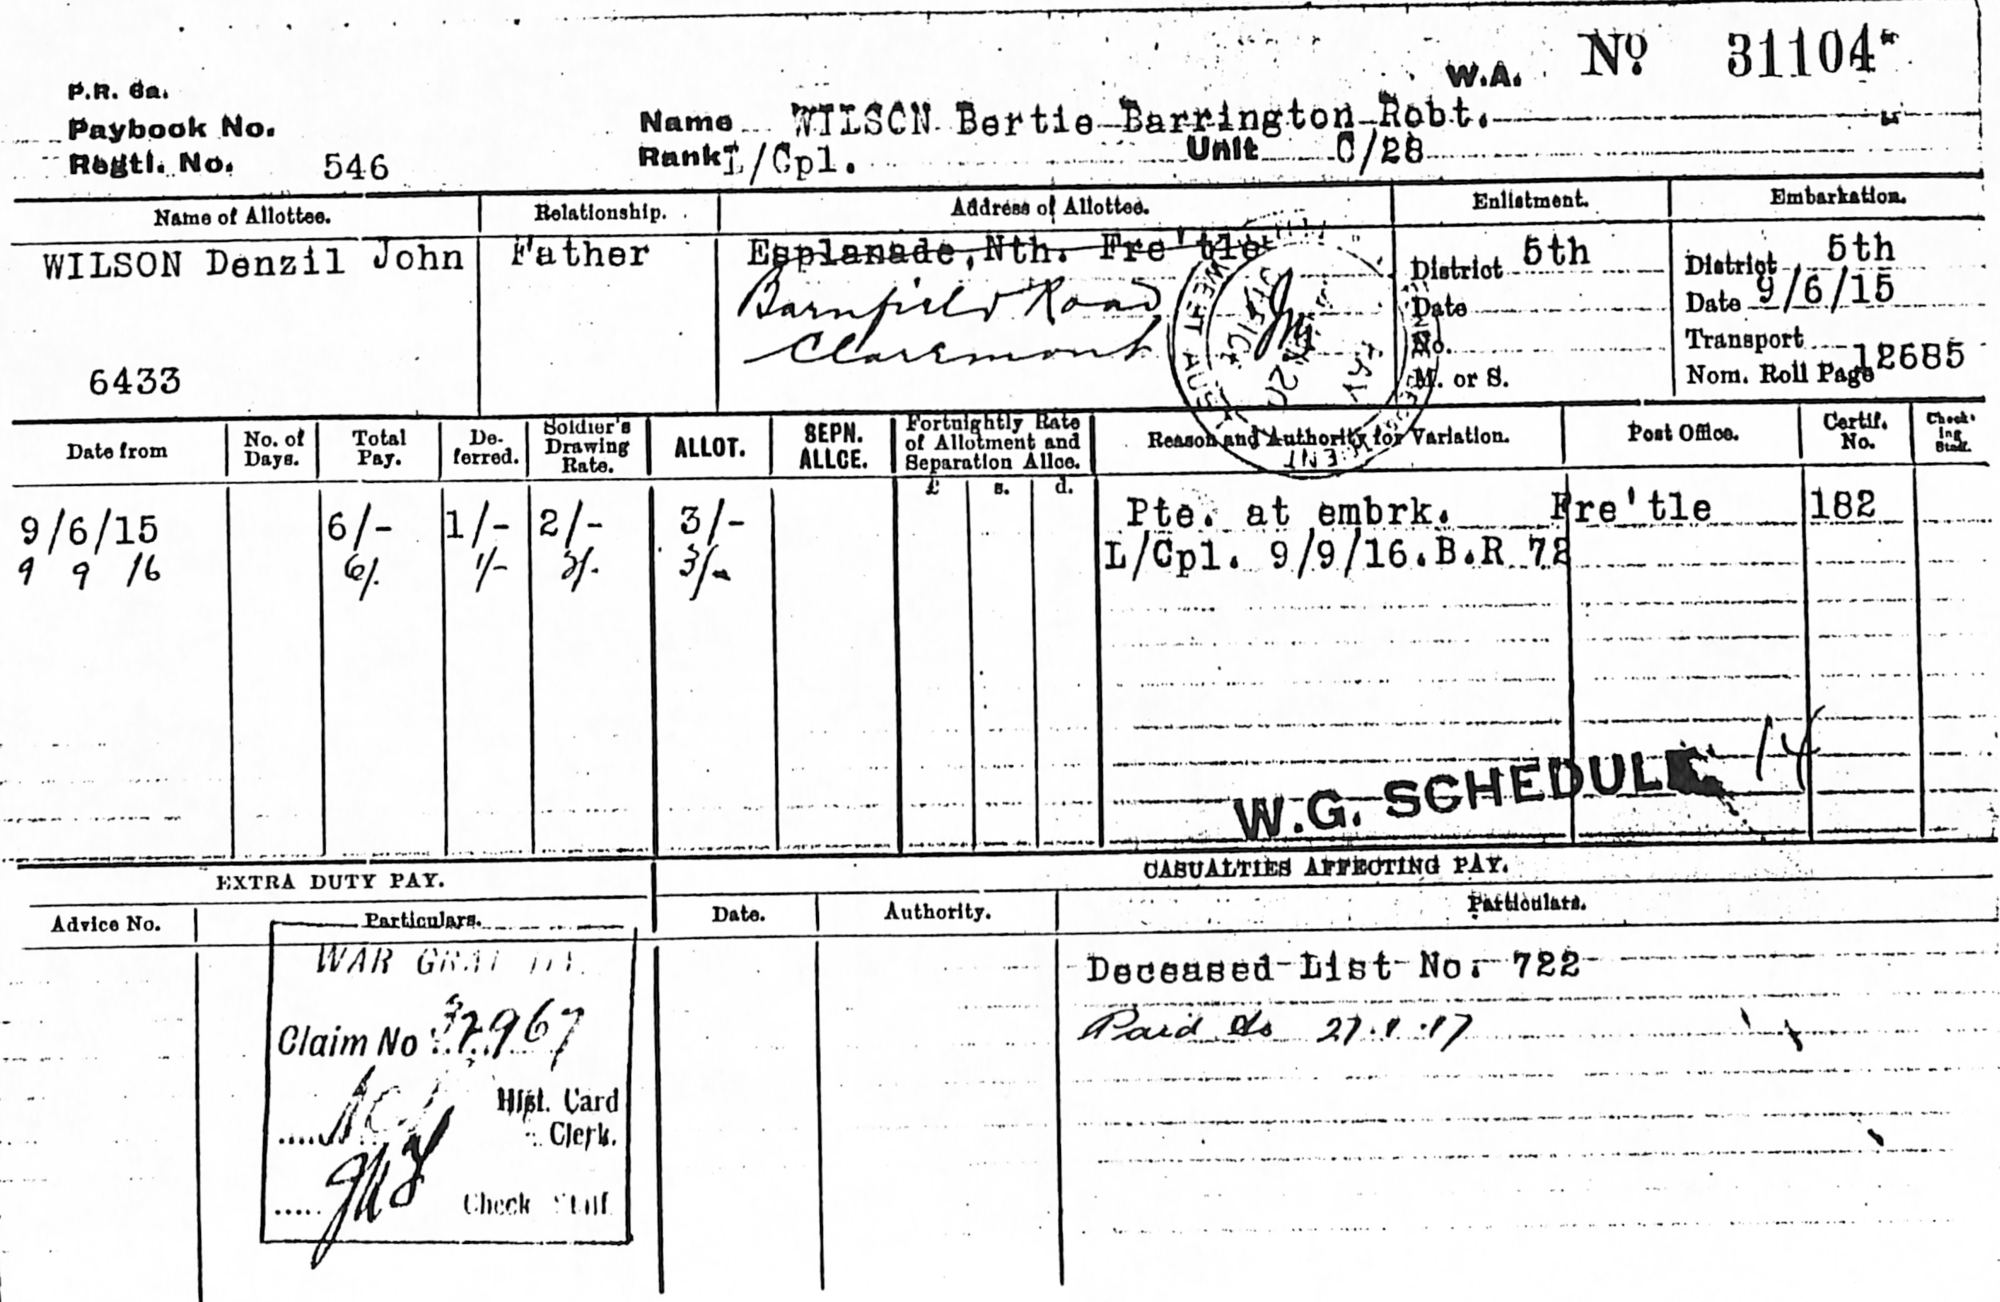 W.A. Nº 31104*
P.R. 6a.
Paybook No.
Regtl. No. 546
Name WILSON Bertie Barrington Robt.
Rank L/Cpl. Unit C/28
Name of Allottee. Relationship. Address of Allottee. Enlistment. Embarkation.
WILSON Denzil John Father Esplanade, Nth. Fre'tle
Barnfield Road
Claremont
6433
District 5th
Date
No.
M. or S.
District 5th
Date 9/6/15
Transport
Nom. Roll Page 12685
WEST AUST
Date from No. of Days. Total Pay. De-ferred. Soldier's Drawing Rate. ALLOT. SEPN. ALLCE. Fortnightly Rate of Allotment and Separation Allce. Reason and Authority for Variation. Post Office. Certif. No. Check-ing
£ s. d.
9/6/15 6/- 1/- 2/- 3/- Pte. at embrk. Fre'tle 182
9 9 16 6/. 1/- 2/. 3/- L/Cpl. 9/9/16.B.R 72
W.G. SCHEDULE 14
EXTRA DUTY PAY. CASUALTIES AFFECTING PAY.
Advice No. Particulars. Date. Authority. Particulars.
WAR
Claim No 32967
Hist. Card
Clerk.
Check Staff
Deceased List No. 722
Paid to 27.1.17